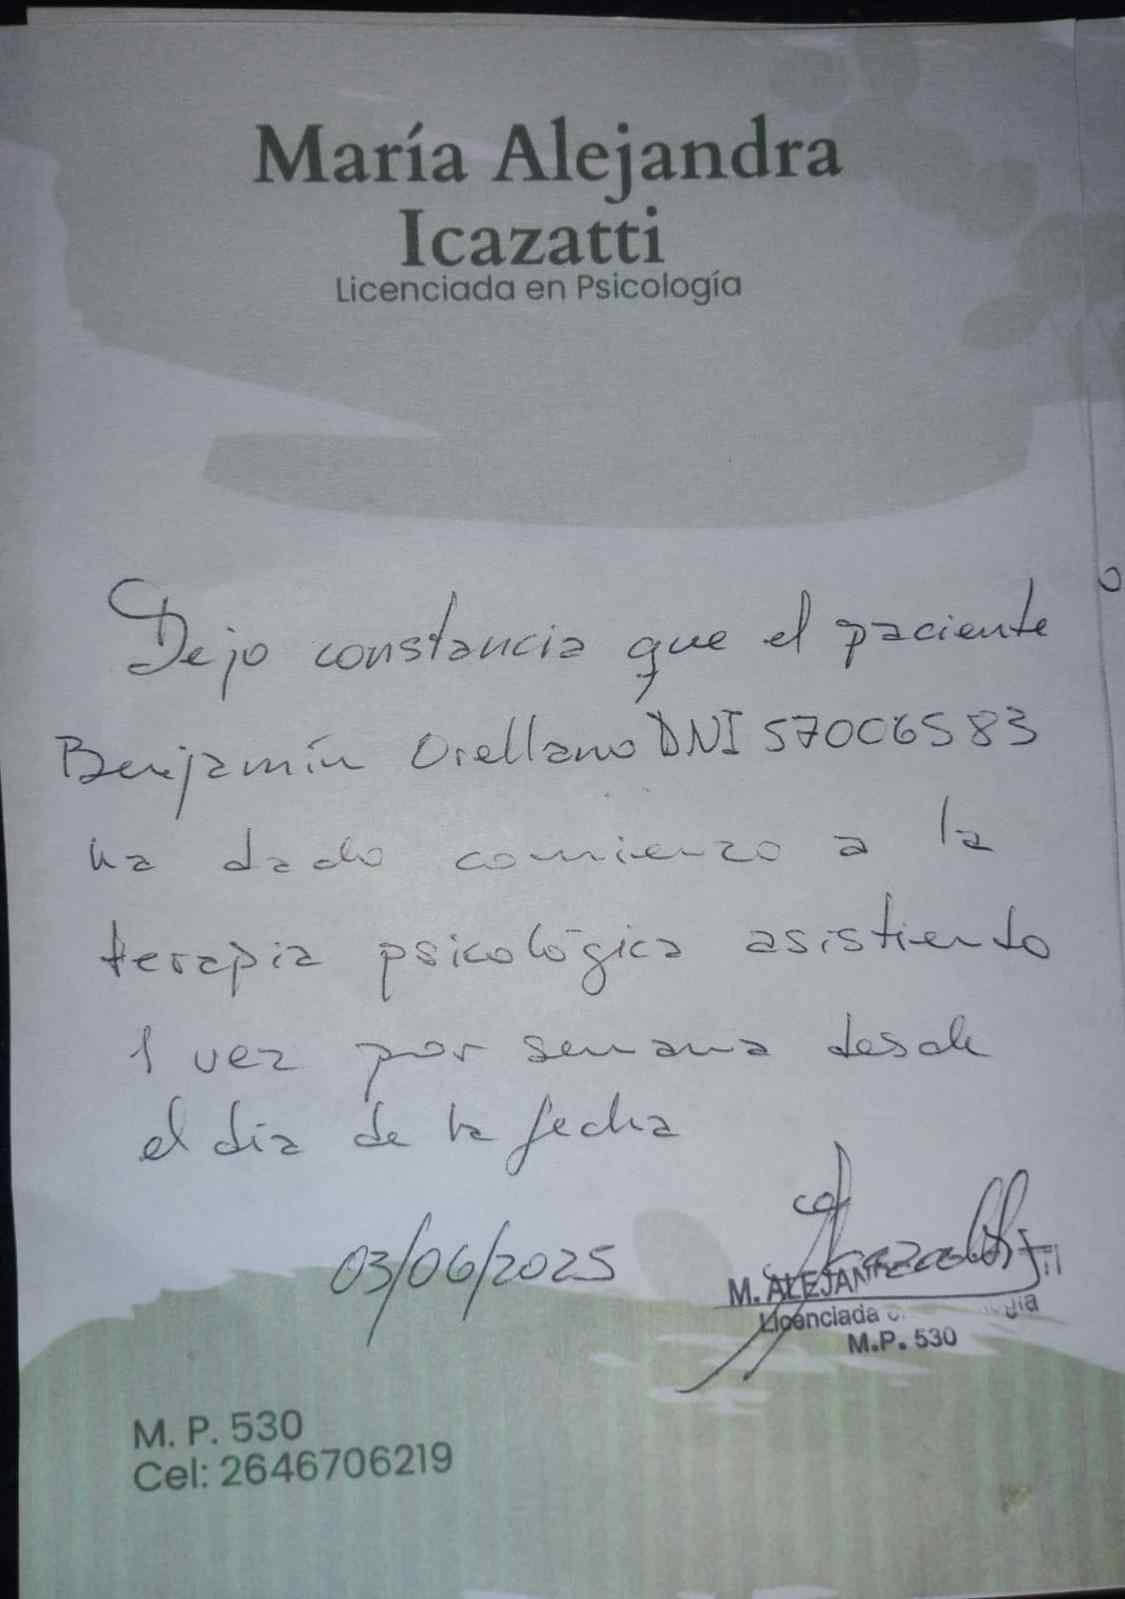 María Alejandra
Icazatti
Licenciada en Psicología
Dejo constancia que el paciente
Benjamín Orellano DNI 57006583
ha dado comienzo a la
terapia psicológica asistiendo
1 vez por semana desde
el día de la fecha
03/06/2025
M. ALEJAN
Licenciada
M.P. 530
M. P. 530
Cel: 2646706219